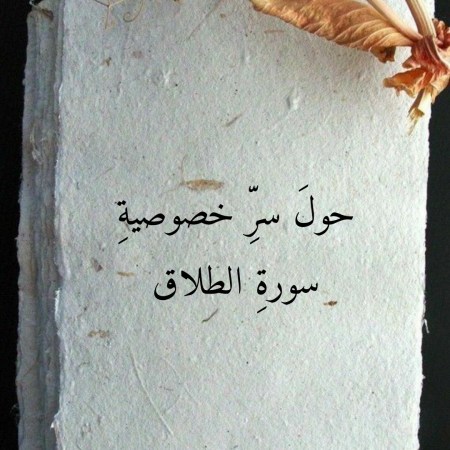 حولَ سرِّ خصوصيةِ
سورةِ الطلاق